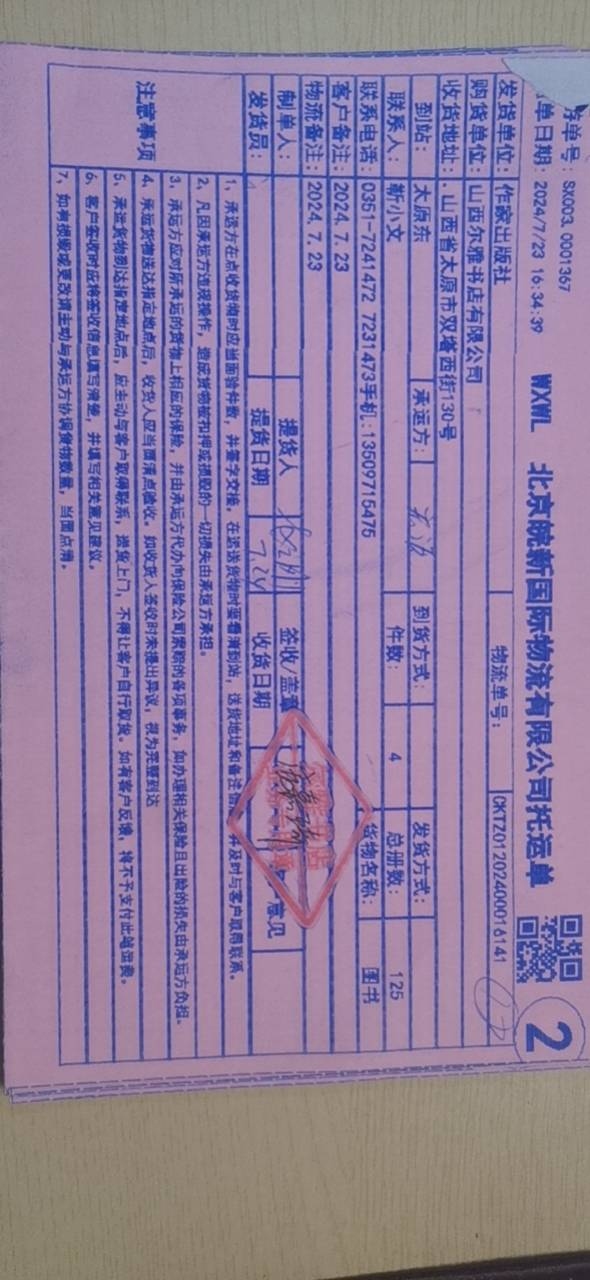 存单号: SK003.0001367
单日期: 2024/7/23 16:34:39 WXWL 北京皖新国际物流有限公司托运单 2
发货单位: 作家出版社 物流单号: CKTZ01202400016141
购货单位: 山西尔雅书店有限公司
收货地址: 山西省太原市双塔西街130号
到站: 太原东 承运方: 到货方式: 发货方式:
联系人: 靳小文 件数: 4 总册数: 125
联系电话: 0351-7241472 7231473手机:13509715475 货物名称: 图书
客户备注: 2024.7.23
物流备注: 2024.7.23
制单人: 提货人 签收/盖章 意见
发货员: 提货日期 7.24 收货日期
注意事项
1、承运方在点收货物时应当面验件数，并签字交接。在运送货物时要看清到站、送货地址和备注信息，并及时与客户取得联系。
2、凡因承运方违规操作，造成货物被扣押或损毁的一切损失由承运方承担。
3、承运方应对所承运的货物上相应的保险，并由承运方代办向保险公司索赔的各项事务，如办理相关保险且出险的损失由承运方负担。
4、承运货物送达指定地点后，收货人应当面清点验收。如收货人签收时未提出异议，视为完整到达
5、承运货物到达指定地点后，应主动与客户取得联系，送货上门，不得让客户自行取货。如有客户反馈，将不予支付此趟运费。
6、客户签收时应将签收信息填写清楚，并填写相关意见建议。
7、如有损毁或更改请主动与承运方协调货物数量，当面点清。